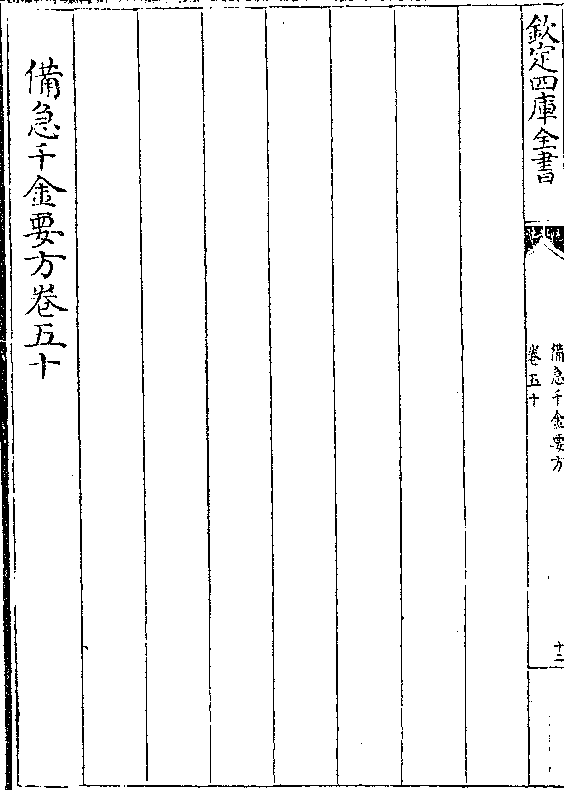 欽定四庫全書
備急千金要方
卷五十
十二
備急千金要方卷五十